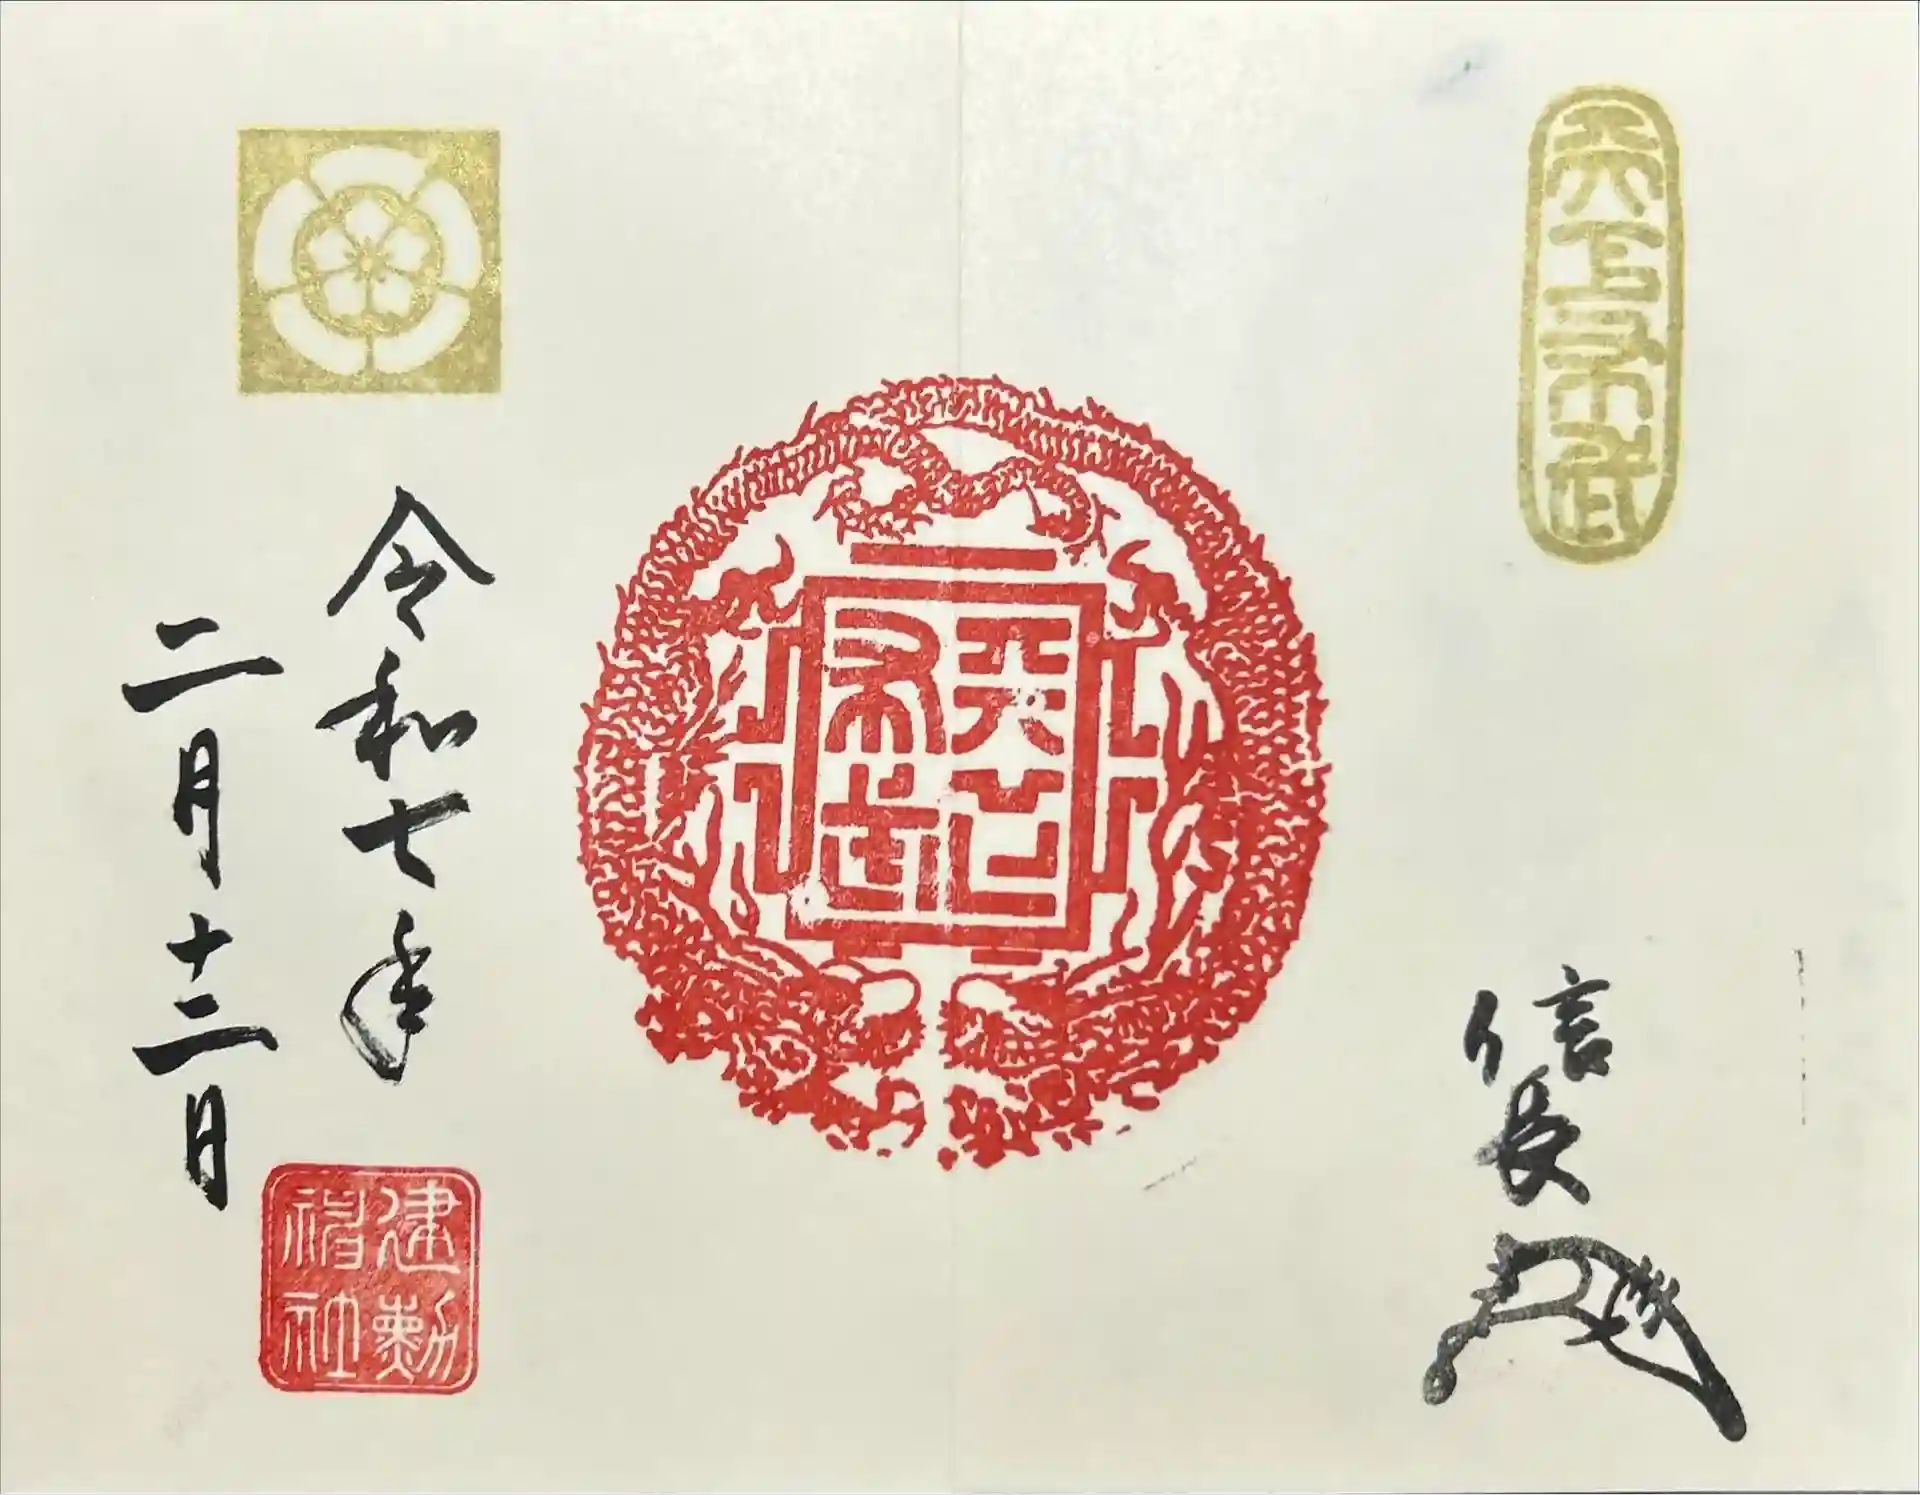 天下布武
信長
天下
布武
令和七年
二月十二日
建勲
神社